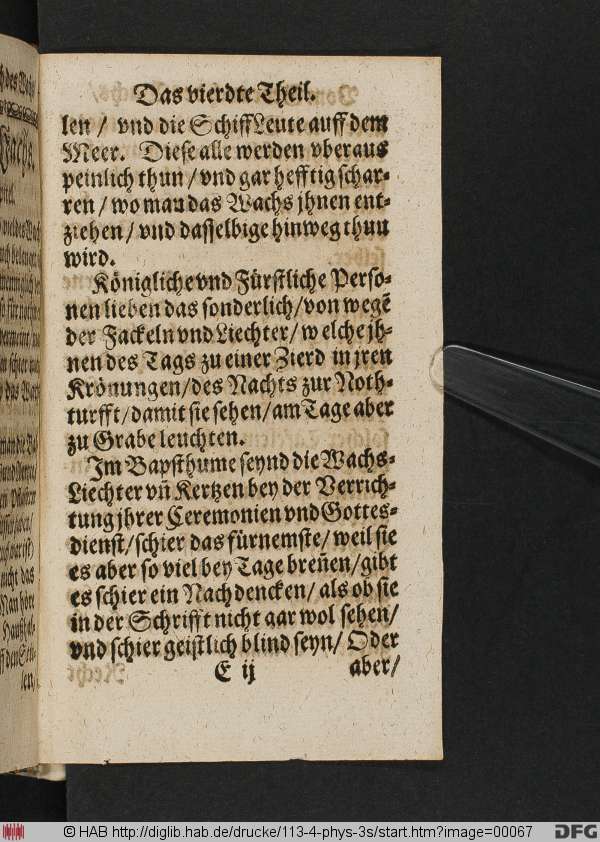 Das vierdte Theil.
len / vnd die SchiffLeute auff dem
Meer. Diese alle werden vberaus
peinlich thun / vnd gar hefftig schar-
ren / wo man das Wachs jhnen ent-
ziehen / vnd dasselbige hinweg thun
wird.
Königliche vnd Fürstliche Perso-
nen lieben das sonderlich / von wegẽ
der Fackeln vnd Liechter / welche jh-
nen des Tags zu einer Zierd in jren
Krönungen / des Nachts zur Noth-
turfft / damit sie sehen / am Tage aber
zu Grabe leuchten.
Im Bapsthume seynd die Wachs-
Liechter vñ Kertzen bey der Verrich-
tung jhrer Ceremonien vnd Gottes-
dienst / schier das fürnemste / weil sie
es aber so viel bey Tage breñen / gibt
es schier ein Nachdencken / als ob sie
in der Schrifft nicht gar wol sehen /
vnd schier geistlich blind seyn / Oder
E ij aber /
© HAB http://diglib.hab.de/drucke/113-4-phys-3s/start.htm?image=00067
DFG